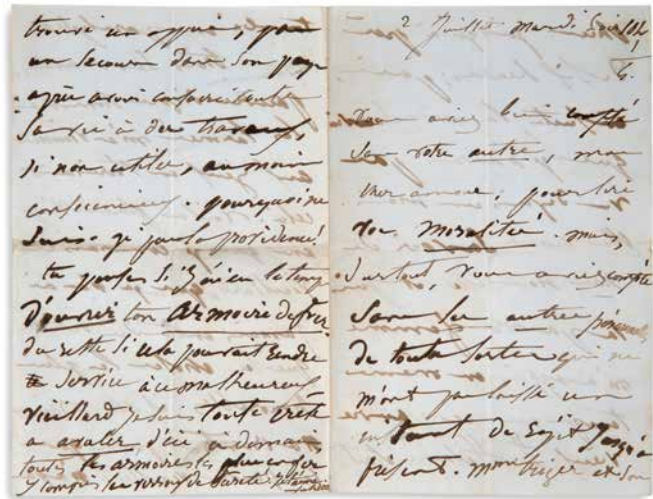 trouvé un appui, pas
un secours dans son pays
après avoir consacré toute
sa vie à des travaux,
si non utiles, au moins
consciencieux. pourquoi ne
suis-je pas la providence!
tu penses si j'ai eu le temps
d'ouvrir ton armoire de fer
du reste si cela pouvait rendre
service à ce malheureux
vieillard je suis toute prête
à avaler d'ici à demain
toutes les armoires les plus en fer
y compris les verrous de sureté.
2 Juillet mardi soir 10h
1/4
Vous aviez bien compté
sans votre autre, mon
cher amour, pour lire
vos moralités. mais,
surtout, vous aviez compté
sans les autres
de toute sorte qui ne
m'ont pas laissé un
instant de répit jusqu'à
présent. mon triger et son